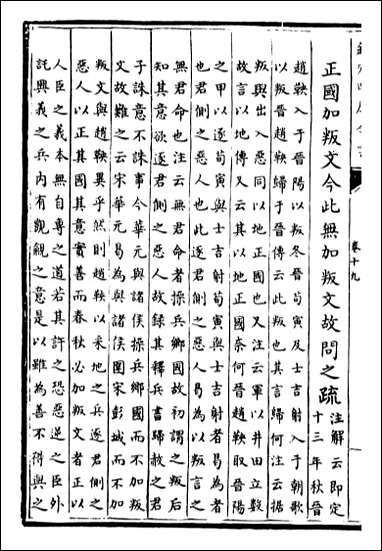 正國加叛文今此無加叛文故問之疏
注解云即定
十三年秋晉
趙鞅入于晉陽以叛冬晉荀寅及士吉射入于朝歌
以叛晉趙鞅歸于晉傳云此叛也其言歸何注云据
叛與出入惡同以地正國也又注云軍以井田立數
故言以地傳又云其以地正國奈何晉趙鞅取晉陽
之甲以逐荀寅與士吉射荀寅與士吉射者曷為者
也君側之惡人也此逐君側之惡人曷為以叛言之
無君命也注云無君命者操兵鄉國故初謂之叛后
知其意欲逐君側之惡人故録其釋兵書歸赦之君
子誅意不誅事今華元與諸侯操兵鄉國而不加叛
文故難之云宋華元曷為與諸侯圍宋彭城而不加
叛文與趙鞅異乎然則趙鞅以采地之兵逐君側之
惡人以正其國其意實善而春秋必加叛文者正以
人臣之義本無自專之道若其許之恐惡逆之臣外
託興義之兵內有覬覦之意是以雖為善不得與之
卷十九